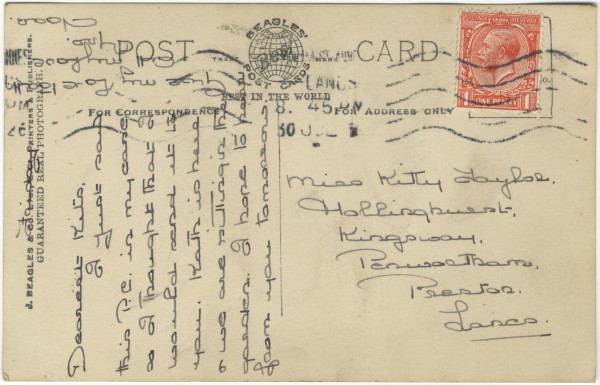 POST CARD
BEAGLES'
POST CARDS
TRADE
BEST IN THE WORLD
FOR CORRESPONDENCE
FOR ADDRESS ONLY
J. BEAGLES & CO. LTD.
PRINTERS & PUBLISHERS.
GUARANTEED REAL PHOTOGRAPH.
8. 45 PM
30 JUL
LANCS
ONE PENNY
1 1
Miss Kitty Taylor
Hollinghurst,
Kingsway,
Penwortham,
Preston.
Lancs.
Sunday
Dearest Kits,
I just saw
this P.C. in my case
so I thought that I
would send it to
you. Kath is here
& we are sitting in the
garden. I hope to hear
from you tomorrow